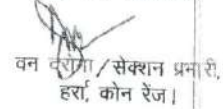 वन दरोगा / सेक्शन प्रभारी,
हर्रा, कोन रेंज।